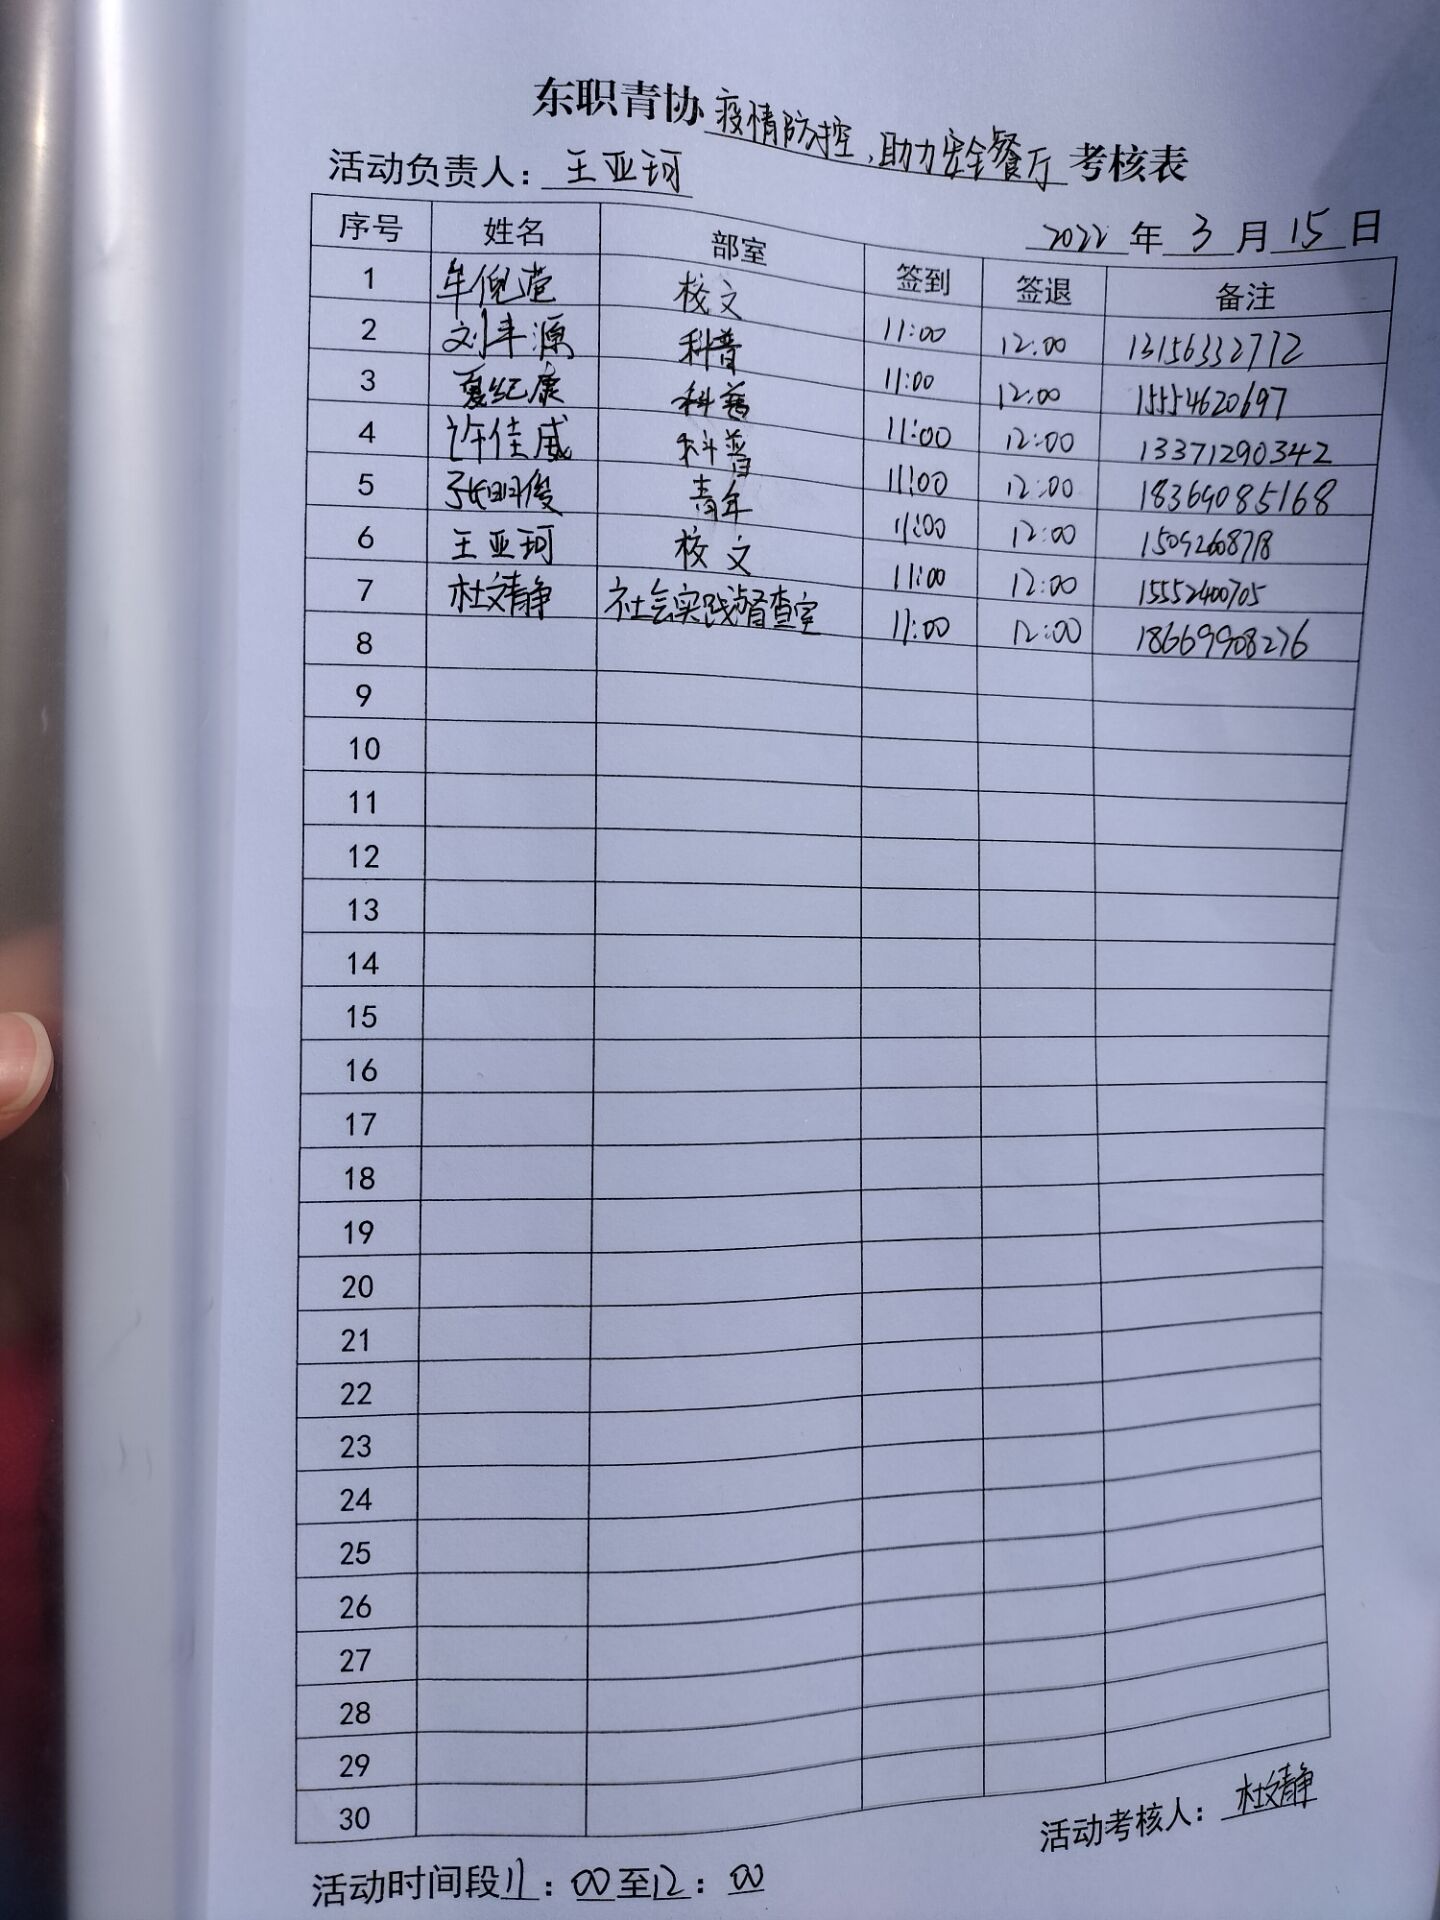 东职青协疫情防控,助力安全餐厅考核表
活动负责人:王亚珂
2022年3月15日
序号 姓名 部室 签到 签退 备注
1 牟倪萱 校文 11:00 12:00 13156332772
2 刘丰源 科普 11:00 12:00 15554620697
3 夏纪康 科普 11:00 12:00 13371290342
4 许佳威 科普 11:00 12:00 18369085168
5 张明俊 青年 11:00 12:00 15092608718
6 王亚珂 校文 11:00 12:00 15552400705
7 杜文静 社会实践督查室 11:00 12:00 18669908276
8
9
10
11
12
13
14
15
16
17
18
19
20
21
22
23
24
25
26
27
28
29
30
活动考核人:杜文静
活动时间段11:00至12:00